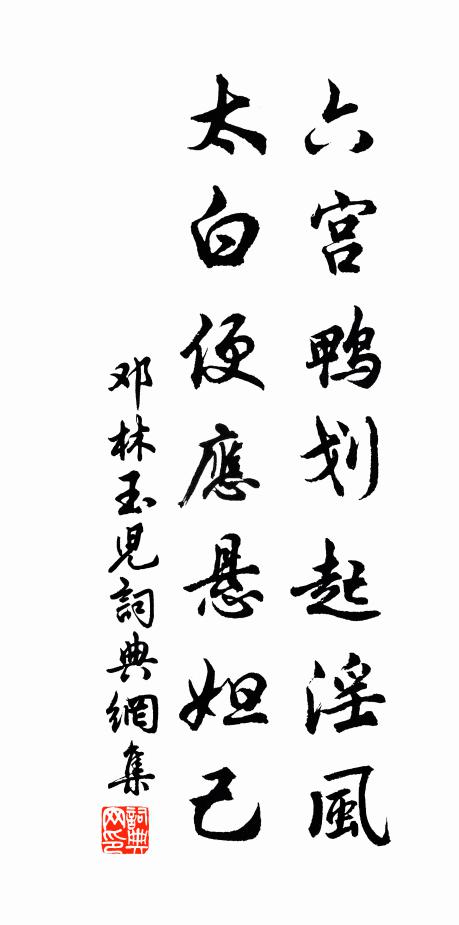 六宫鸭划起淫風
太白便應悬妲己
邓林玉児詞典網集
詞典网印